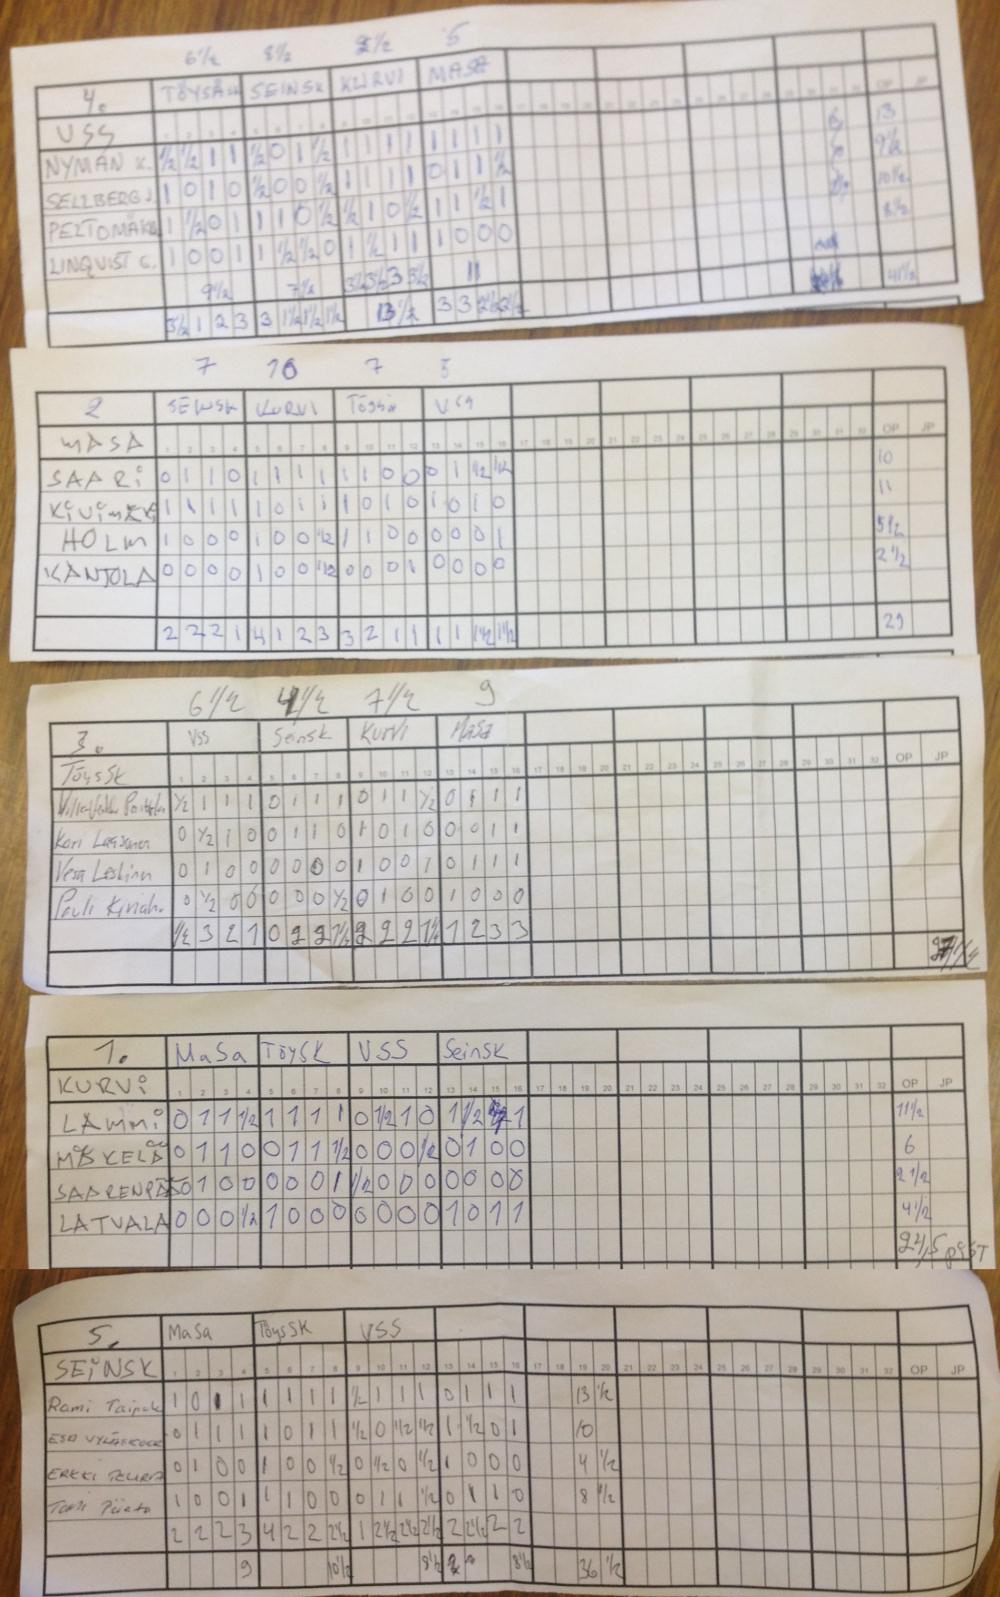 6½ 8½ 2½ 5
4. TÖYSÄSK SEINSK KURVI MASA
VSS 1 2 3 4 5 6 7 8
NYMAN K. ½ ½ 1 1 ½ 0 1 ½ 1 1 1 1 1 1 1 1 13
SELLBERG J. 1 0 1 0 ½ 0 0 ½ 1 1 1 1 0 1 1 ½ 9½
PELTOMÄKI 1 ½ 0 1 1 1 0 ½ ½ 1 0 ½ 1 1 ½ 1 10½
LINQVIST G. 1 0 0 1 1 ½ ½ 0 1 ½ 1 1 1 0 0 0 8½
9½ 7½ 3½ 3½ 3 3½ 11 41½
3½ 1 2 3 3 1½ 1½ 1½ 13½ 3 3 2½ 2½
7 10 7 5
2 SEINSK KURVI Töysä VSS
MASA 1 2 3 4 5 6 7 8 9 10 11 12 13 14 15 16 17 18 19 20 21 22 23 24 25 26 27 28 29 30 31 32 OP JP
SAARI 0 1 1 0 1 1 1 1 1 1 0 0 0 1 ½ ½ 10
KIVIMÄKI 1 1 1 1 1 0 1 1 1 0 1 0 1 0 1 0 11
HOLM 1 0 0 0 1 0 0 ½ 1 1 0 0 0 0 0 1 5½
KANTOLA 0 0 0 0 1 0 0 ½ 0 0 0 1 0 0 0 0 2½
2 2 2 1 4 1 2 3 3 2 1 1 1 1 1½ 1½ 29
6½ 4½ 7½ 9
3. VSS Seinsk Kurvi MaSa
TöysSK 1 2 3 4 5 6 7 8 9 10 11 12 13 14 15 16 17 18 19 20 21 22 23 24 25 26 27 28 29 30 31 32 OP JP
½ 1 1 1 0 1 1 1 0 1 1 ½ 0 1 1 1
Kari 0 ½ 1 0 0 1 1 0 1 0 1 0 0 0 1 1
Vesa 0 1 0 0 0 0 0 0 1 0 0 1 0 1 1 1
Pauli 0 ½ 0 0 0 0 0 ½ 0 1 0 0 1 0 0 0
½ 3 2 1 0 2 2 1½ 2 2 2 1½ 1 2 3 3
27½
1. MaSa TöySK VSS SeinSK
KURVI 1 2 3 4 5 6 7 8 9 10 11 12 13 14 15 16 17 18 19 20 21 22 23 24 25 26 27 28 29 30 31 32 OP JP
LAMMI 0 1 1 ½ 1 1 1 1 0 ½ 1 0 1 ½ 1 11½
MÄKELÄ 0 1 1 0 0 1 1 ½ 0 0 0 ½ 0 1 0 0 6
SAARENPÄÄ 0 1 0 0 0 0 0 1 ½ 0 0 0 0 0 0 0 2½
LATVALA 0 0 0 ½ 1 0 0 0 0 0 0 0 1 0 1 1 4½
24,5 pist
5. MaSa TöysSK VSS
SEINSK 1 2 3 4 5 6 7 8 9 10 11 12 13 14 15 16 17 18 19 20 21 22 23 24 25 26 27 28 29 30 31 32 OP JP
Rami Taipale 1 0 1 1 1 1 1 1 ½ 1 1 1 0 1 1 1 13 ½
ESA 0 1 1 1 1 0 1 1 ½ 0 ½ ½ 1 ½ 0 1 10
ERKKI 0 1 0 0 1 0 0 ½ 0 ½ 0 ½ 1 0 0 0 4 ½
Tomi 1 0 0 1 1 1 0 0 0 1 1 ½ 0 1 1 0 8 ½
2 2 2 3 4 2 2 2½ 1 2½ 2½ 2½ 2 2½ 2 2
9 10½ 8½ 8½ 36 ½